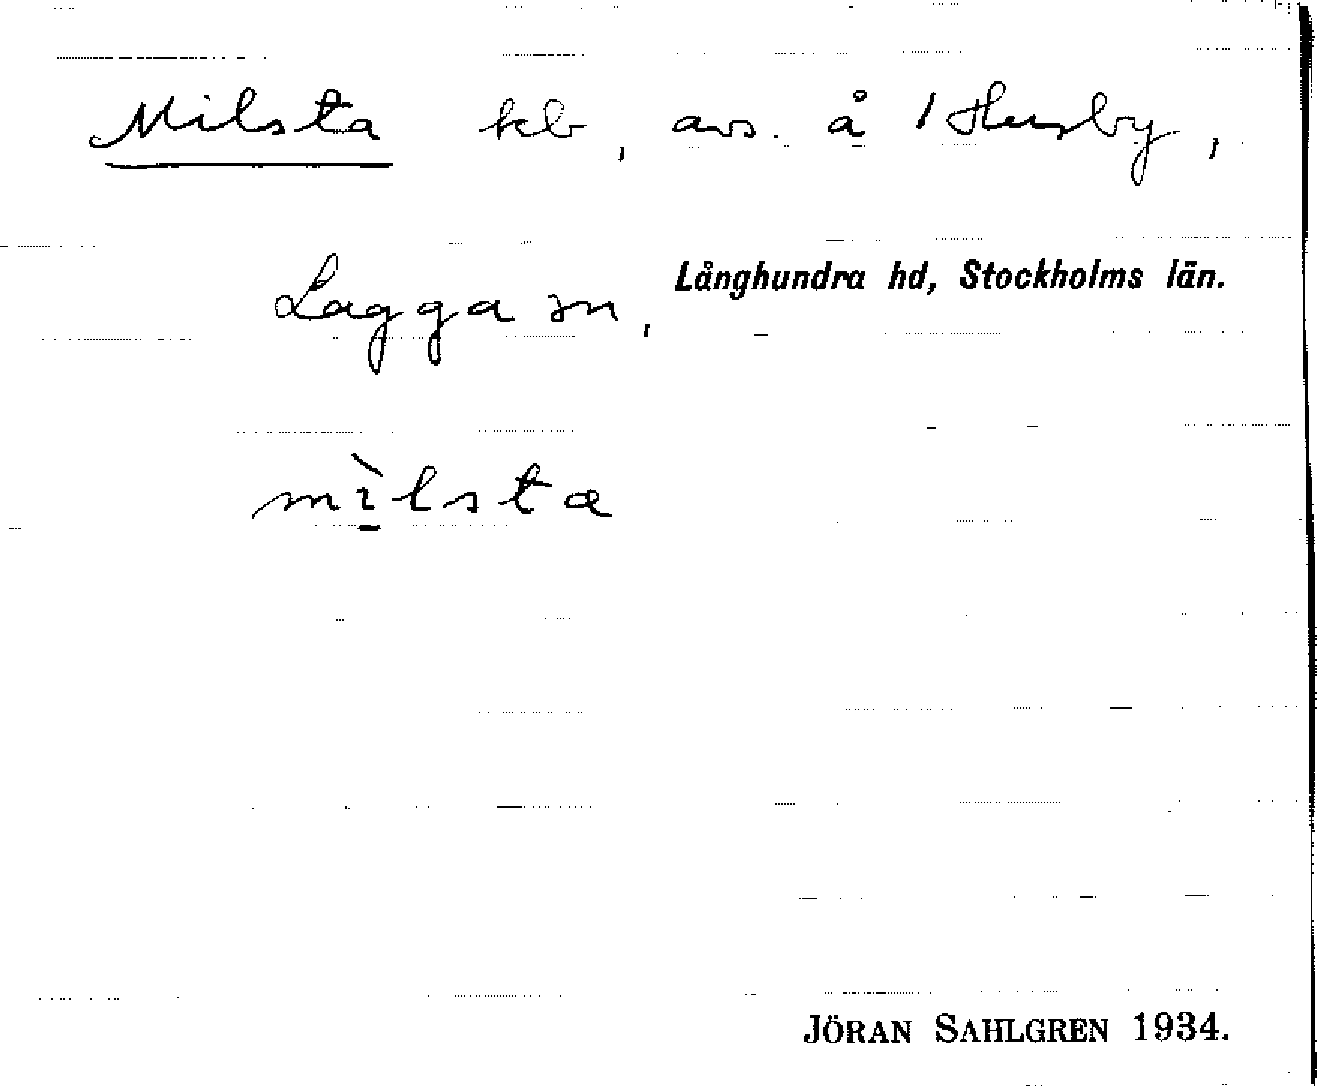 Milsta kb, avs. å 1 Husby,
Lagga sn, Långhundra hd, Stockholms län.
mìlsta
JÖRAN SAHLGREN 1934.